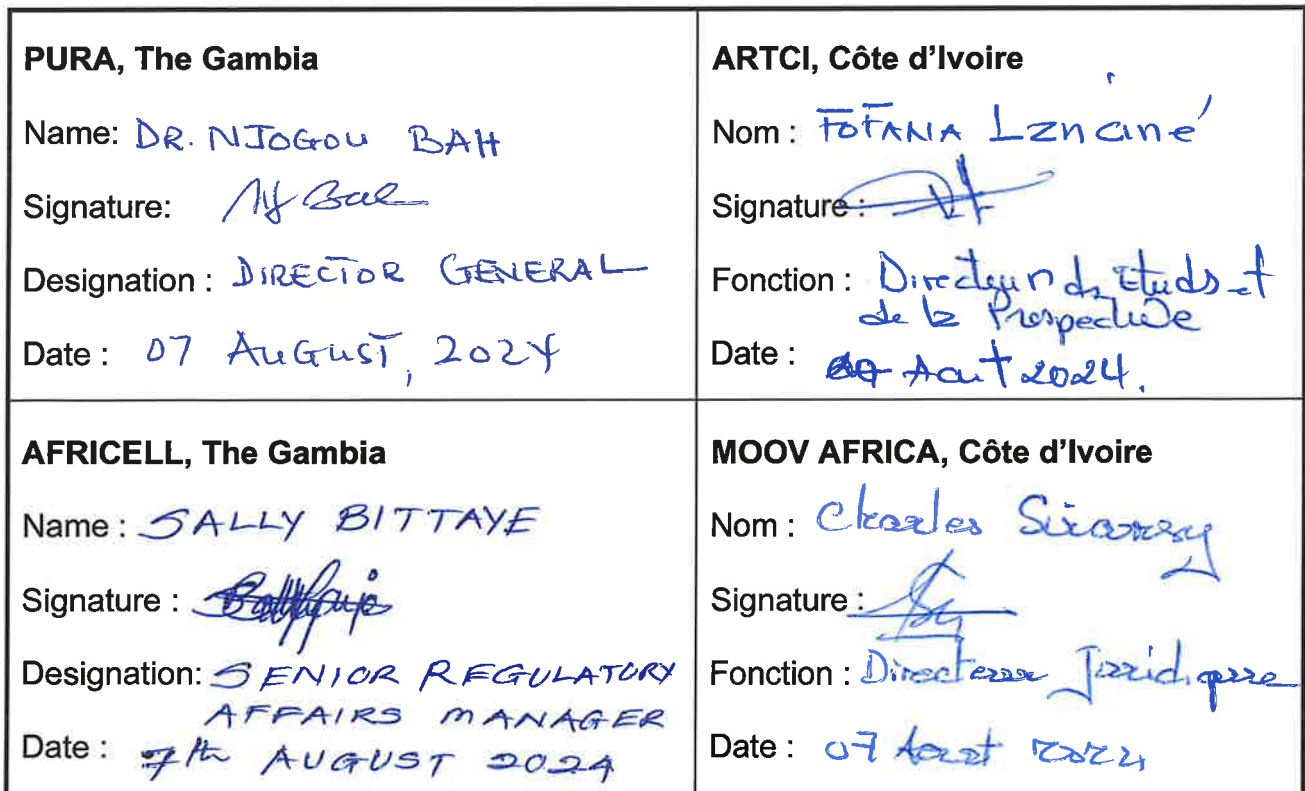 PURA, The Gambia
Name: DR. NJOGOU BAH
Signature:
Designation : DIRECTOR GENERAL
Date : 07 AUGUST, 2024
ARTCI, Côte d'Ivoire
Nom : FOFANA Lanciné
Signature :
Fonction : Directeur des Etudes et
de la Prospective
Date : Aout 2024.
AFRICELL, The Gambia
Name : SALLY BITTAYE
Signature :
Designation: SENIOR REGULATORY
AFFAIRS MANAGER
Date : 7th AUGUST 2024
MOOV AFRICA, Côte d'Ivoire
Nom : Charles
Signature :
Fonction : Directeur Juridique
Date : 07 Aout 2024